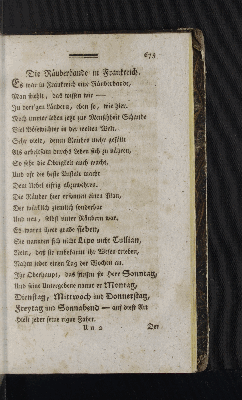 673
Die Räuberbande in Frankreich.
Es war in Frankreich eine Räuberbande,
Man stiehlt, das wissen wir —
In vor'gen Ländern, eben so, wie hier.
Noch immer leben jetzt zur Menschheit Schande
Viel Bösewichter in der weiten Welt.
Sehr viele, denen Rauben mehr gefällt
Als arbeitsam durchs Leben sich zu nähren,
So sehr die Obrigkeit auch wacht,
Und oft die beste Anstalt macht
Dem Uebel eifrig abzuwehren.
Die Räuber hier ersannen einen Plan,
Der wirklich ziemlich sonderbar
Und neu, selbst unter Räubern war.
Es waren ihrer grade sieben,
Sie nannten sich nicht Lips nicht Tullian,
Nein, daß sie unbekannt ihr Wesen trieben,
Nahm jeder einen Tag der Wochen an.
Ihr Oberhaupt, das hießen sie Herr Sonntag,
Und seine Untergebene nannt er Montag,
Dienstag, Mittwoch und Donnerstag,
Freytag und Sonnabend — auf diese Art
Hielt jeder seine eigne Fahrt.
Uu 2 Der